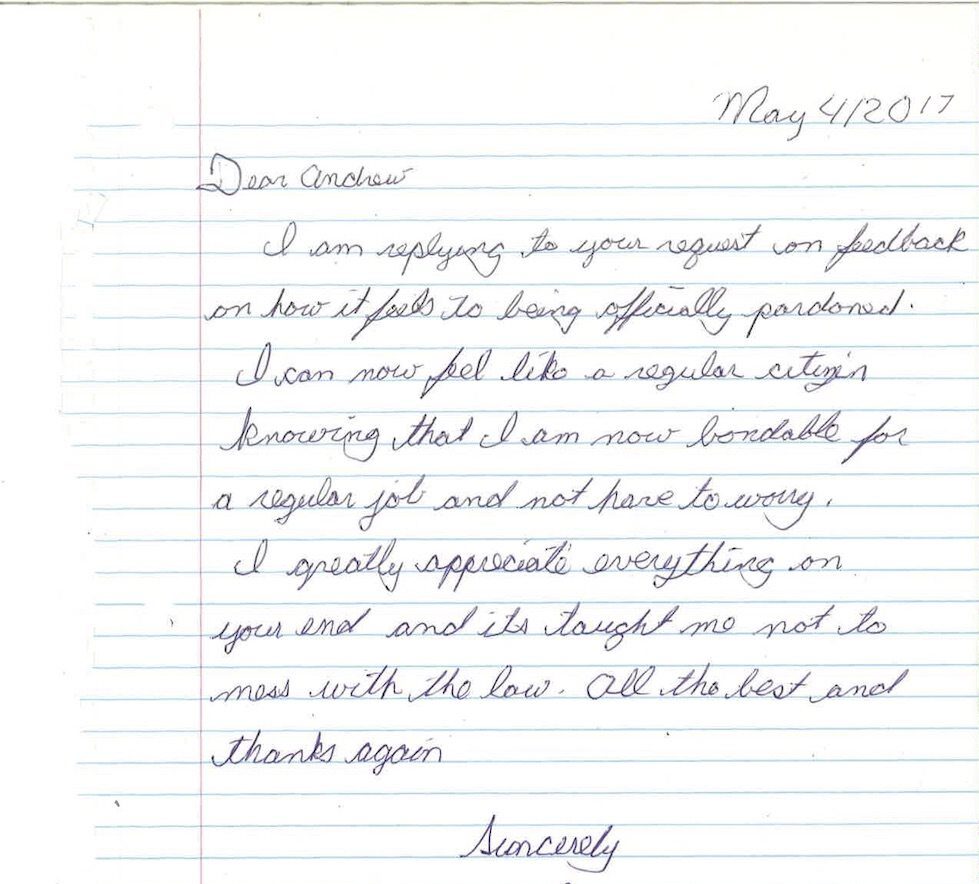 May 4/2017
Dear Andrew
I am replying to your request on feedback
on how it feels to being officially pardoned.
I can now feel like a regular citizen
knowing that I am now bondable for
a regular job and not have to worry.
I greatly appreciate everything on
your end and its taught me not to
mess with the law. All the best and
thanks again
Sincerely